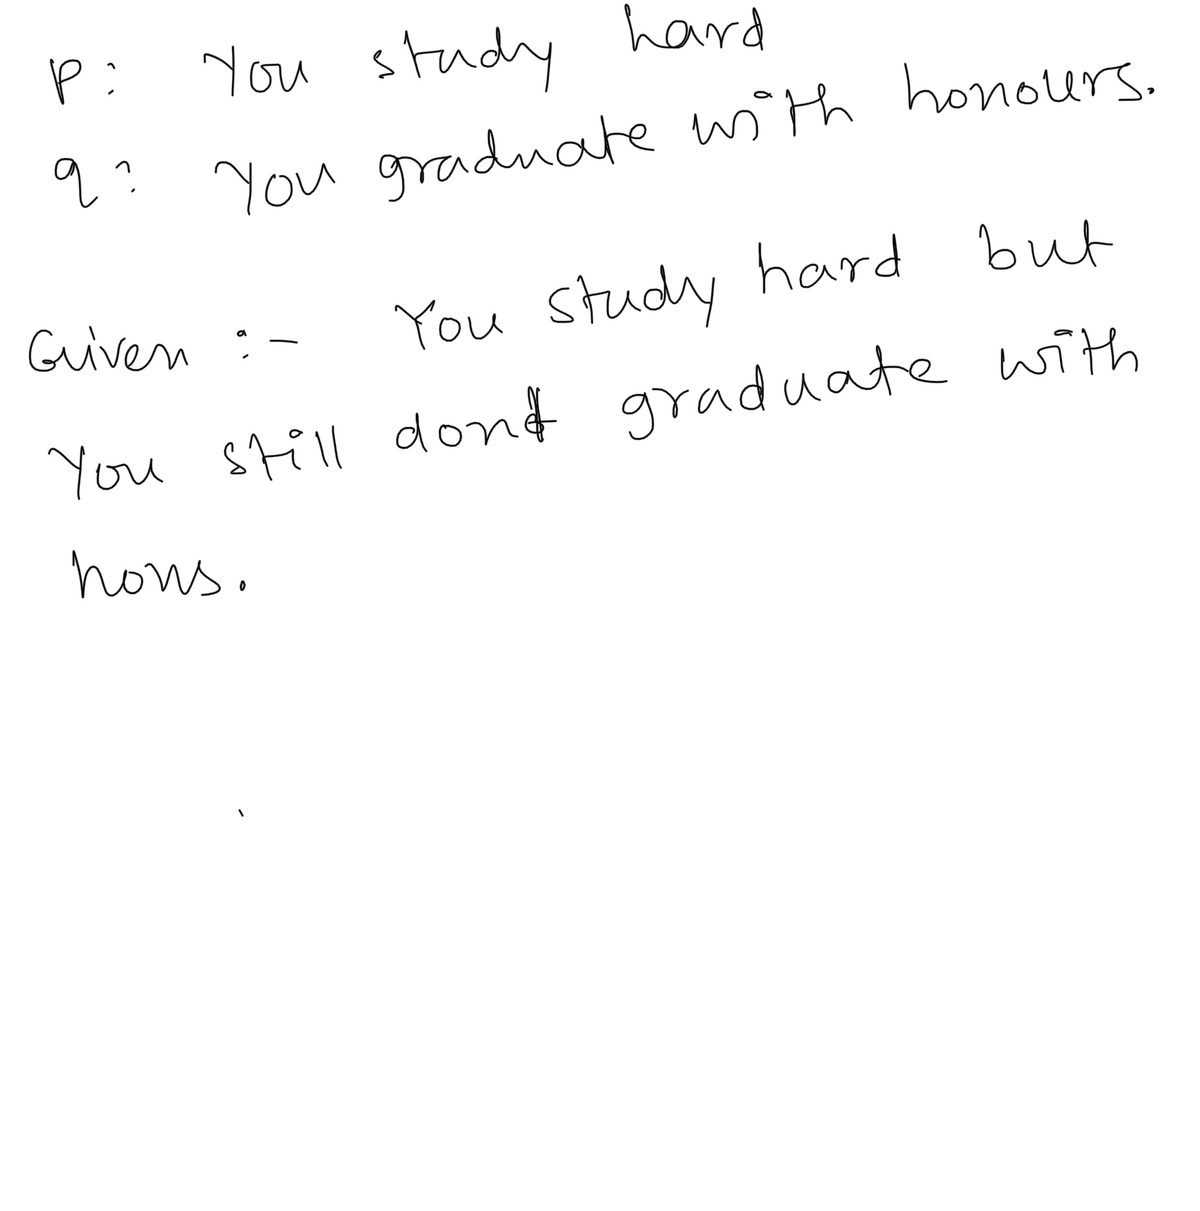 p: You study hard
q: You graduate with honours.
Given :- You study hard but
You still dont graduate with
hons.